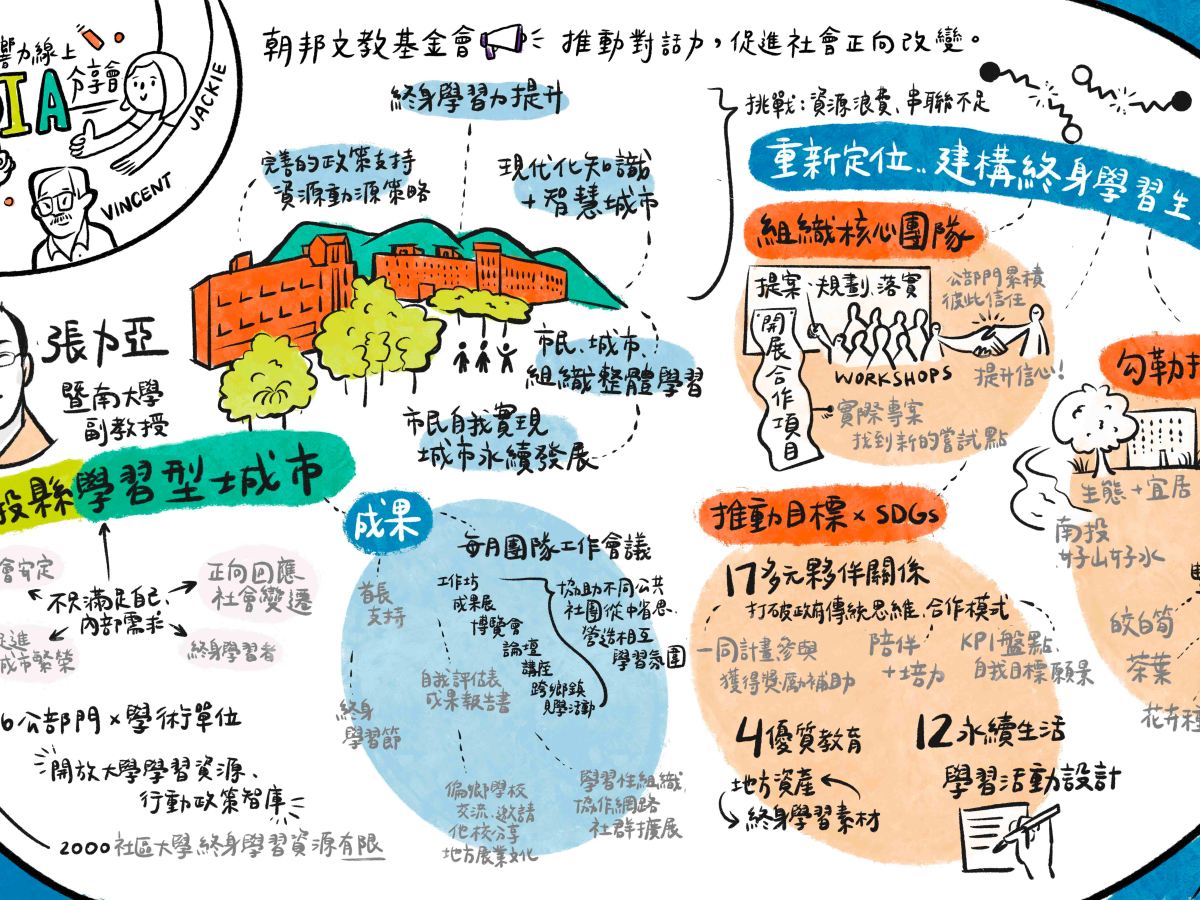 響力線上
IA
分享會
JACKIE
VINCENT
朝邦文教基金會 推動對話力，促進社會正向改變。
終身學習力提升
完善的政策支持
資源動源策略
現代化知識
+智慧城市
市民、城市、
組織整體學習
市民自我實現
城市永續發展
張力亞
暨南大學
副教授
投縣學習型城市
會安定
正向回應
社會變遷
不只滿足自己、
內部需求
促進
城市繁榮
終身學習者
6公部門×學術單位
開放大學學習資源、
行動政策智庫
2000 社區大學終身學習資源有限
成果
每月團隊工作會議
首長
支持
工作坊
成果展
博覽會
論壇
講座
跨鄉鎮
見學活動
協助不同公共
社團從中省思、
營造相互
學習氛圍
自我評估表
成果報告書
終身
學習節
偏鄉學校
交流、邀請
他校分享
地方展業文化
學習性組織、
協作網路
社群擴展
挑戰：資源浪費、串聯不足
重新定位..建構終身學習生
組織核心團隊
提案、規劃、落實
開展合作項目
WORKSHOPS
公部門累積
彼此信任
提升信心!
實際專案
找到新的嘗試點
推動目標×SDGs
17多元夥伴關係
打破政府傳統思維、合作模式
一同計畫參與
獲得獎勵補助
陪伴
+培力
KPI盤點、
自我目標願景
4優質教育
地方資產
終身學習素材
12永續生活
學習活動設計
勾勒
生態+宜居
南投
好山好水
皎白筍
茶葉
花卉種